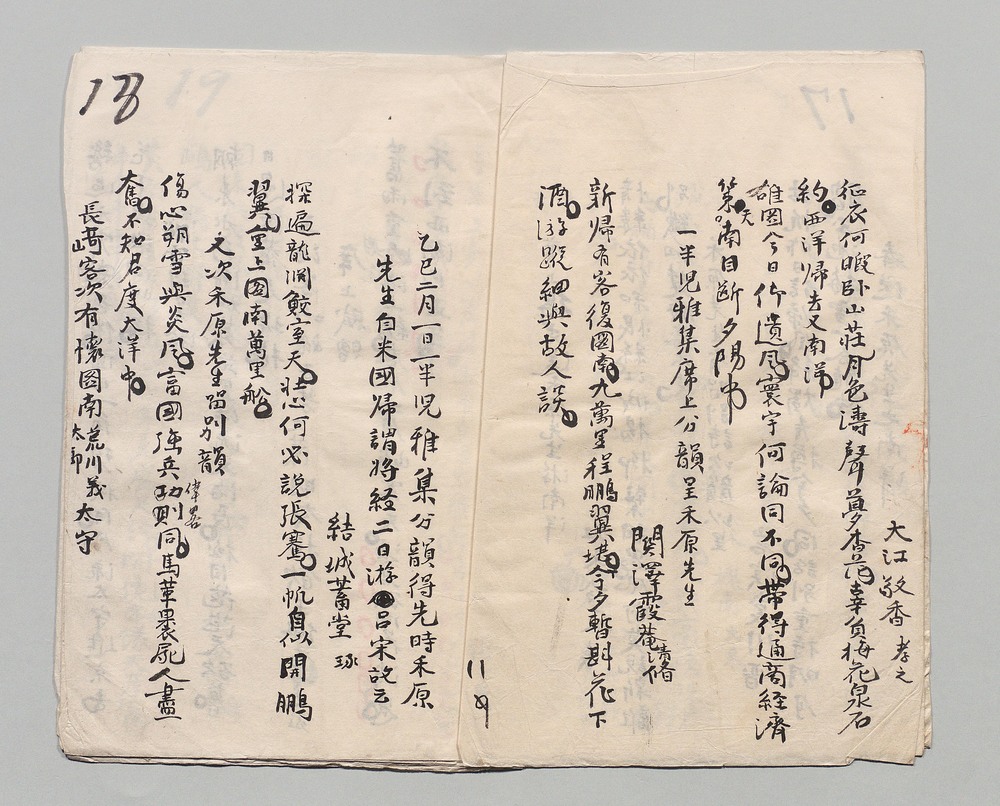 大江敬香 孝之
征衣何暇臥山莊月色濤聲夢杳茫幸負梅花泉石
約西洋歸去又南洋
雄圖今日仰遺風寰宇何論同不同帶得通商經濟
策天南目斷夕陽中
一半児雅集席上分韻呈禾原先生
関澤霞菴清脩
新帰有客復図南九萬里程鵬翼堪今夕暫斟花下
酒游蹤細與故人談
11
乙巳二月一日一半児雅集分韻得先時禾原
先生自米國帰謂将経二日游呂宋故云
結城蓄堂 琢
探遍龍淵鮫室天壮心何必説張騫一帆自似開鵬
翼室上図南萬里船
又次禾原先生留別韻
傷心朔雪與炎風富國強兵功則同馬革裹屍人盡
偉畧
奮不知君度大洋中
長﨑客次有懐図南 荒川義太守
太郎
18
19
17